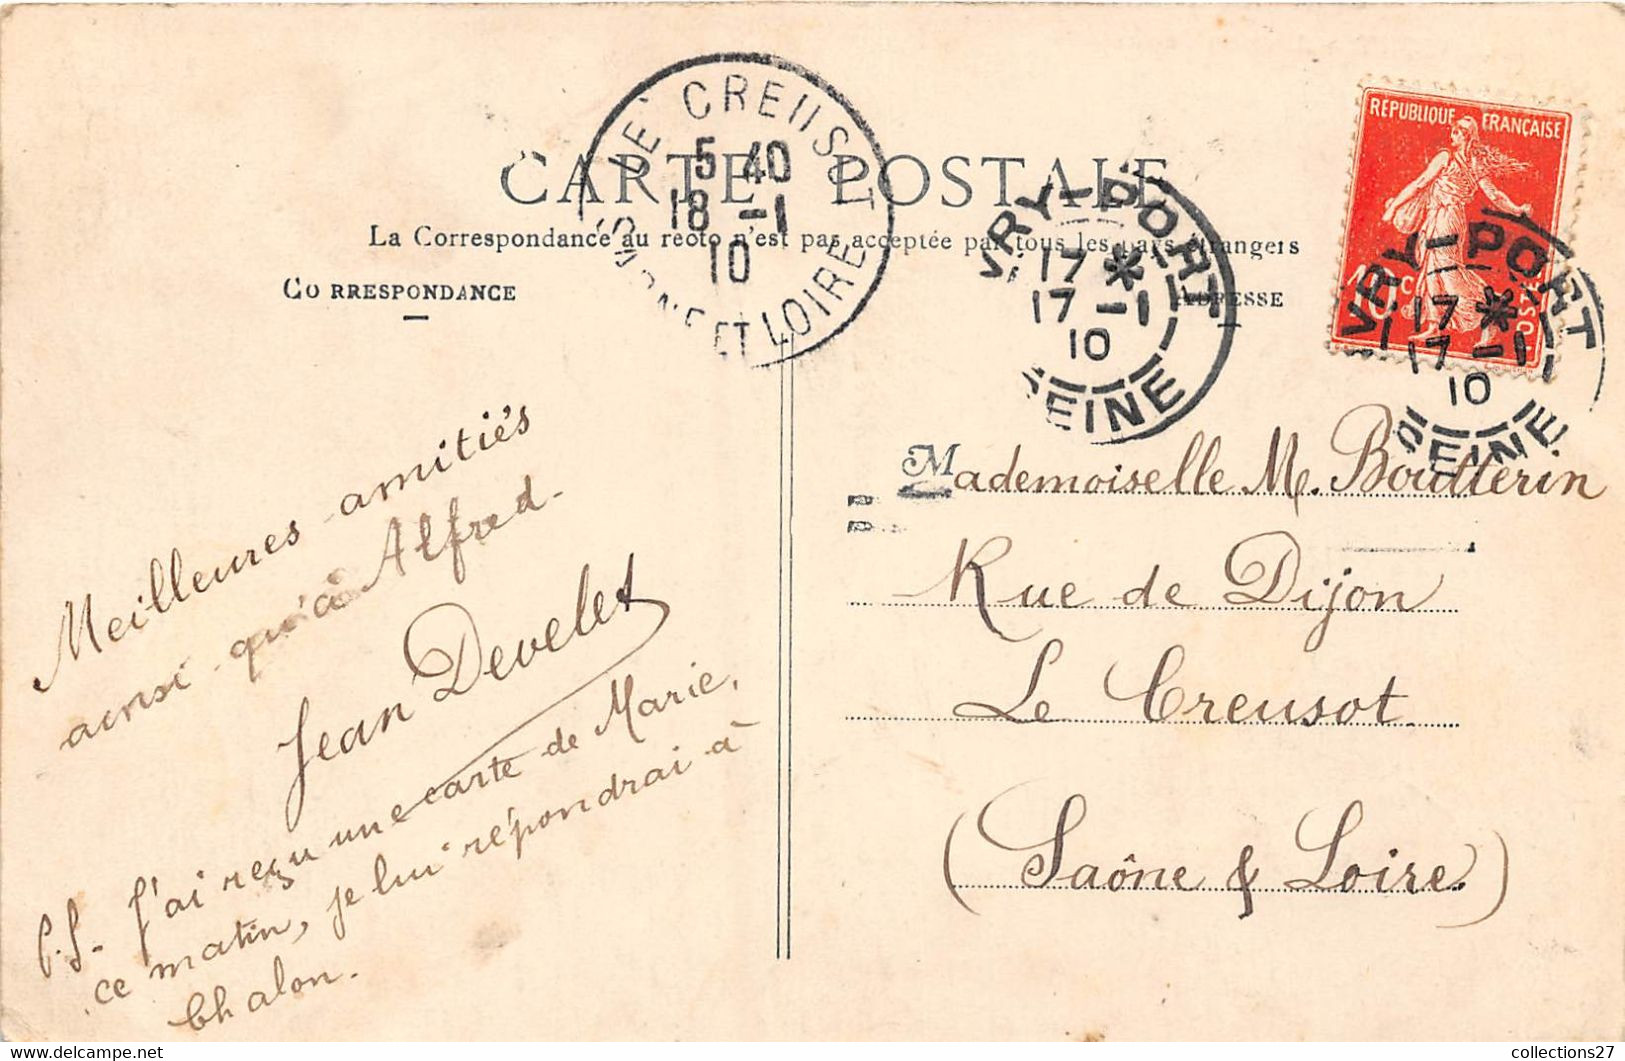 CARTE POSTALE
La Correspondance au recto n'est pas acceptée par tous les pays étrangers
CORRESPONDANCE
ADRESSE
LE CREUSOT
5 40
18 -1
10
SAONE ET LOIRE
IVRY-PORT
17 *
17 -1
10
SEINE
RÉPUBLIQUE FRANÇAISE
10c
POSTES
IVRY-PORT
17 *
17 -1
10
SEINE
Meilleures amitiés
ainsi qu'à Alfred.
Jean Develet
P.S. J'ai reçu une carte de Marie,
ce matin, je lui répondrai à
Chalon.
Mademoiselle M. Boutterin
Rue de Dijon
Le Creusot
(Saône & Loire.)
https://www.delcampe.net
collections27